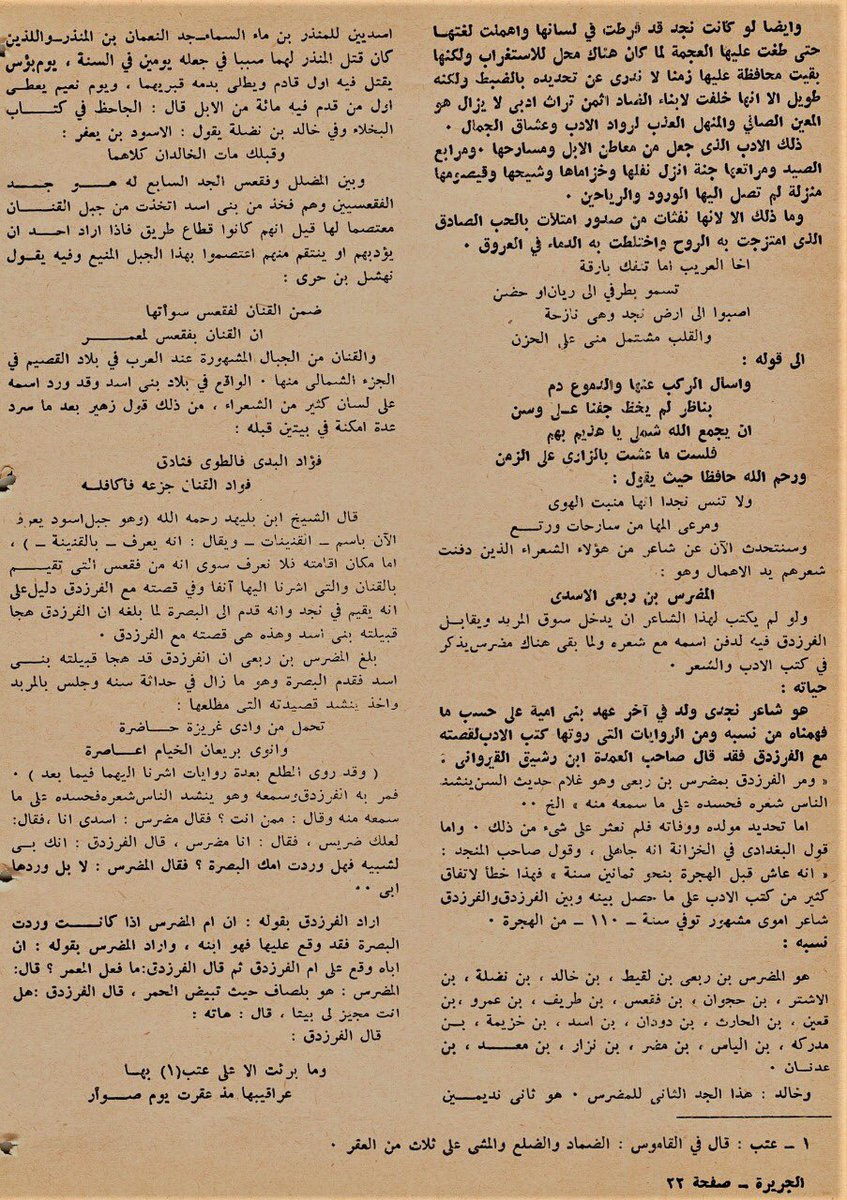 وايضا لو كانت نجد قد فرطت في لسانها واهملت لغتها
حتى طغت عليها العجمة لما كان هناك محل للاستغراب ولكنها
بقيت محافظة عليها زمنا لا ندرى عن تحديده بالضبط ولكنه
طويل الا انها خلفت لابناء الضاد اثمن تراث ادبى لا يزال هو
المعين الصافي والمنهل العذب لرواد الادب وعشاق الجمال ٠
ذلك الادب الذى جعل من معاطن الابل ومسارحها ٠ومرابع
الصيد ومراتعها جنة انزل نفلها وخزاماها وشيحها وقيصومها
منزلة لم تصل اليها الورود والرياحين ٠
وما ذلك الا لانها نفثات من صدور امتلات بالحب الصادق
الذى امتزجت به الروح واختلطت به الدماء في العروق ٠
اخا العريب اما تنفك بارقة
تسمو بطرفي الى ريان او حضن
اصبوا الى ارض نجد وهى نازحة
والقلب مشتمل منى على الحزن
الى قوله :
واسال الركب عنها والدموع دم
بناظر لم يخظ جفنا عـلى وسن
ان يجمع الله شملى يا هذيم بهم
فلست ما عشت بالزارى على الزمن
ورحم الله حافظا حيث يقول :
ولا تنس نجدا انها منبت الهوى
ومرعى المها من سارحات ورتـــع
وسنتحدث الآن عن شاعر من هؤلاء الشعراء الذين دفنت
شعرهم يد الاهمال وهو :
المضرس بن ربعى الاسدى
ولو لم يكتب لهذا الشاعر ان يدخل سوق المربد ويقابـل
الفرزدق فيه لدفن اسمه مع شعره ولما بقى هناك مضرس يذكر
في كتب الادب والشعر ٠
حياته :
هو شاعر نجدى ولد في آخر عهد بنى امية على حسب ما
فهمناه من نسبه ومن الروايات التى روتها كتب الادب لقصته
مع الفرزدق فقد قال صاحب العمدة ابن رشيق القيروانى :
« ومر الفرزدق بمضرس بن ربعى وهو غلام حديث السن ينشد
الناس شعره فحسده على ما سمعه منه » الخ ٠٠
اما تحديد مولده ووفاته فلم نعثر على شىء من ذلك ٠ واما
قول البغدادى في الخزانة انه جاهلى ، وقول صاحب المنجد :
« انه عاش قبل الهجرة بنحو ثمانين سنة » فهذا خطأ لاتفاق
كثير من كتب الادب على ما حصل بينه وبين الفرزدق والفرزدق
شاعر اموى مشهور توفي سنة ــ ١١٠ ــ من الهجرة ٠
نسبه :
هو المضرس بن ربعى بن لقيط ، بن خالد ، بن نضلة ، بن
الاشتر ، بن حجوان ، بن فقعس ، بن طريف ، بن عمرو ،بن
قعين ، بن الحارث ، بن دودان ، بن اسد ، بن خزيمة ، بــن
مدركه ، بن الياس ، بن مضر ، بن نزار ، بن معــــد ، بن
عدنــان ٠
وخالد : هذا الجد الثانى للمضرس ٠ هو ثانى نديمــــين
اسديين للمنذر بن ماء السماء ــ جد النعمان بن المنذر ــ واللذين
كان قتل المنذر لهما سببا في جعله يومين في السنة ، يوم بؤس
يقتل فيه اول قادم ويطلى بدمه قبريهما ، ويوم نعيم يعطـى
اول من قدم فيه مائة من الابل قال : الجاحظ في كتــاب
البخلاء وفي خالد بن نضلة يقول : الاسود بن يعفر :
وقبلك مات الخالدان كلاهما
وبين المضلل وفقعس الجد السابع له هـــو جـــد
الفقعسيين وهم فخذ من بنى اسد اتخذت من جبل القنــان
معتصما لها قيل انهم كانوا قطاع طريق فاذا اراد احـد ان
يؤدبهم او ينتقم منهم اعتصموا بهذا الجبل المنيع وفيه يقـول
نهشل بن حرى :
ضمن القنان لفقعس سوآتها
ان القنان بفقعس لمعمـــر
والقنان من الجبال المشهورة عند العرب في بلاد القصيم في
الجزء الشمالى منها ٠ الواقع في بلاد بنى اسد وقد ورد اسمه
على لسان كثير من الشعراء ، من ذلك قول زهير بعد ما سرد
عدة امكنة في بيتين قبله :
فؤاد البدى فالطوى فثادق
فواد القنان جزعه فأكافلــه
قال الشيخ ابن بليهد رحمه الله (وهو جبل اسود يعرف
الآن باسم ــ القنينات ــ ويقال : انه يعرف ــ بالقنينة ــ ) ،
اما مكان اقامته فلا نعرف سوى انه من فقعس التى تقيــم
بالقنان والتى اشرنا اليها آنفا وفي قصته مع الفرزدق دليل على
انه يقيم في نجد وانه قدم الى البصرة لما بلغه ان الفرزدق هجا
قبيلته بنى اسد وهذه هى قصته مع الفرزدق ٠
بلغ المضرس بن ربعى ان الفرزدق قد هجا قبيلته بنــى
اسد فقدم البصرة وهو ما زال في حداثة سنه وجلس بالمربد
واخذ ينشد قصيدته التى مطلعها :
تحمل من وادى غريزة حــاضرة
وانوى بريعان الخيام اعــاصرة
( وقد روى الطلع بعدة روايات اشرنا اليهما فيما بعد ) ٠
فمر به الفرزدق وسمعه وهو ينشد الناس شعره فحسده على ما
سمعه منه وقال : ممن انت ؟ فقال مضرس : اسدى انا ،فقال:
لعلك ضريس ، فقال : انا مضرس ، قال الفرزدق : انك بـى
لشبيه فهل وردت امك البصرة ؟ فقال المضرس : لا بل وردها
ابى ٠٠
اراد الفرزدق بقوله : ان ام المضرس اذا كانــت وردت
البصرة فقد وقع عليها فهو ابنه ، واراد المضرس بقوله : ان
اباه وقع على ام الفرزدق ثم قال الفرزدق:ما فعل المعمر ؟ قال:
المضرس : هو بلصاف حيث تبيض الحمر ، قال الفرزدق :هل
انت مجيز لى بيتا ، قال : هاته :
قال الفرزدق :
وما برئت الا على عتب(١) بهــا
عراقيبها مذ عقرت يوم صــوآر
١ ــ عتب : قال في القاموس : الضماد والضلع والمشى على ثلاث من العقر ٠
الجزيرة ــ صفحة ٢٢